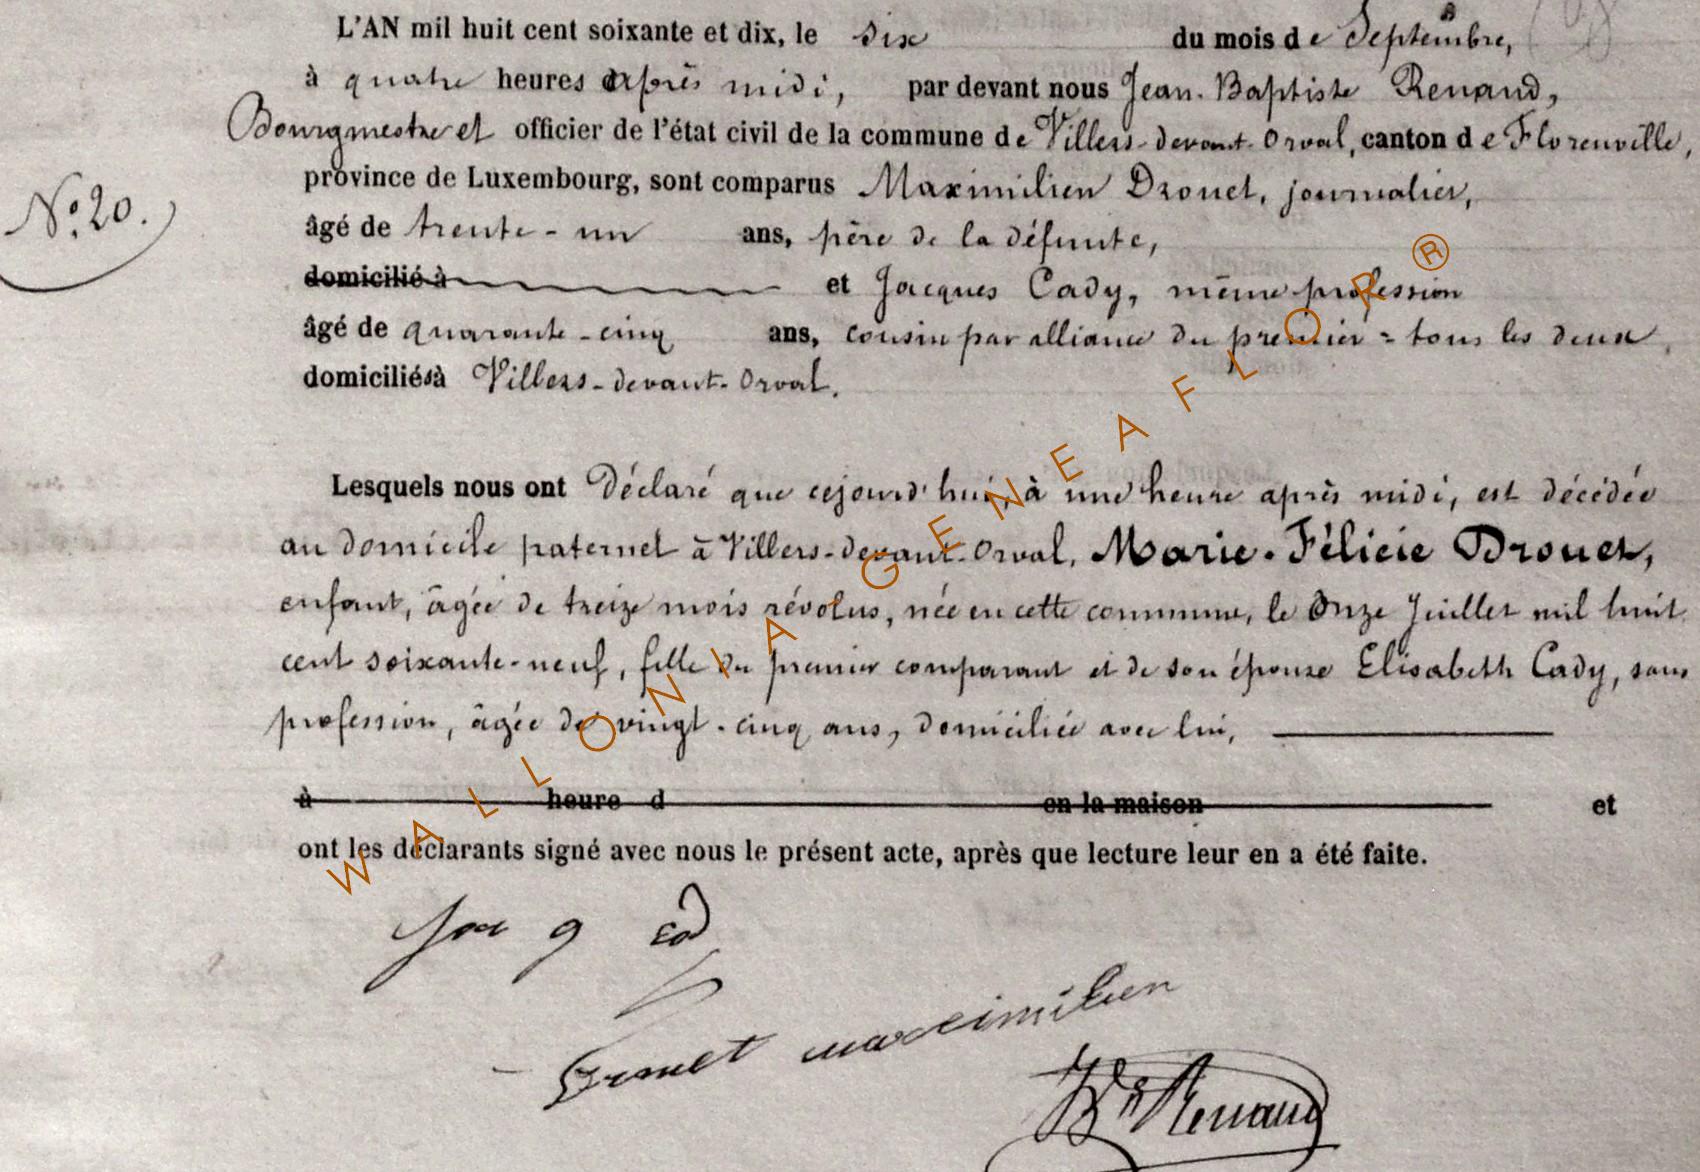 L'AN mil huit cent soixante et dix, le six du mois de Septembre,
à quatre heures après midi, par devant nous Jean-Baptiste Renaud,
Bourgmestre et officier de l'état civil de la commune de Villers-devant-Orval, canton de Florenville,
province de Luxembourg, sont comparus Maximilien Drouet, journalier,
N° 20.
âgé de trente-un ans, père de la défunte,
domicilié à et Jacques Cady, même profession
âgé de quarante-cinq ans, cousin par alliance du premier = tous les deux
domiciliés à Villers-devant-Orval.
Lesquels nous ont Déclaré que cejourd'hui, à une heure après midi, est décédée
au domicile paternel à Villers-devant-Orval, Marie-Félicie Drouet,
enfant, âgée de treize mois révolus, née en cette commune, le onze Juillet mil huit
cent soixante-neuf, fille du premier comparant et de son épouse Elisabeth Cady, sans
profession, âgée de vingt-cinq ans, domiciliée avec lui,
à heure d en la maison et
ont les déclarants signé avec nous le présent acte, après que lecture leur en a été faite.
Drouet maximilien
JBte Renaud
WALLONIA-GENEAFLOR ®